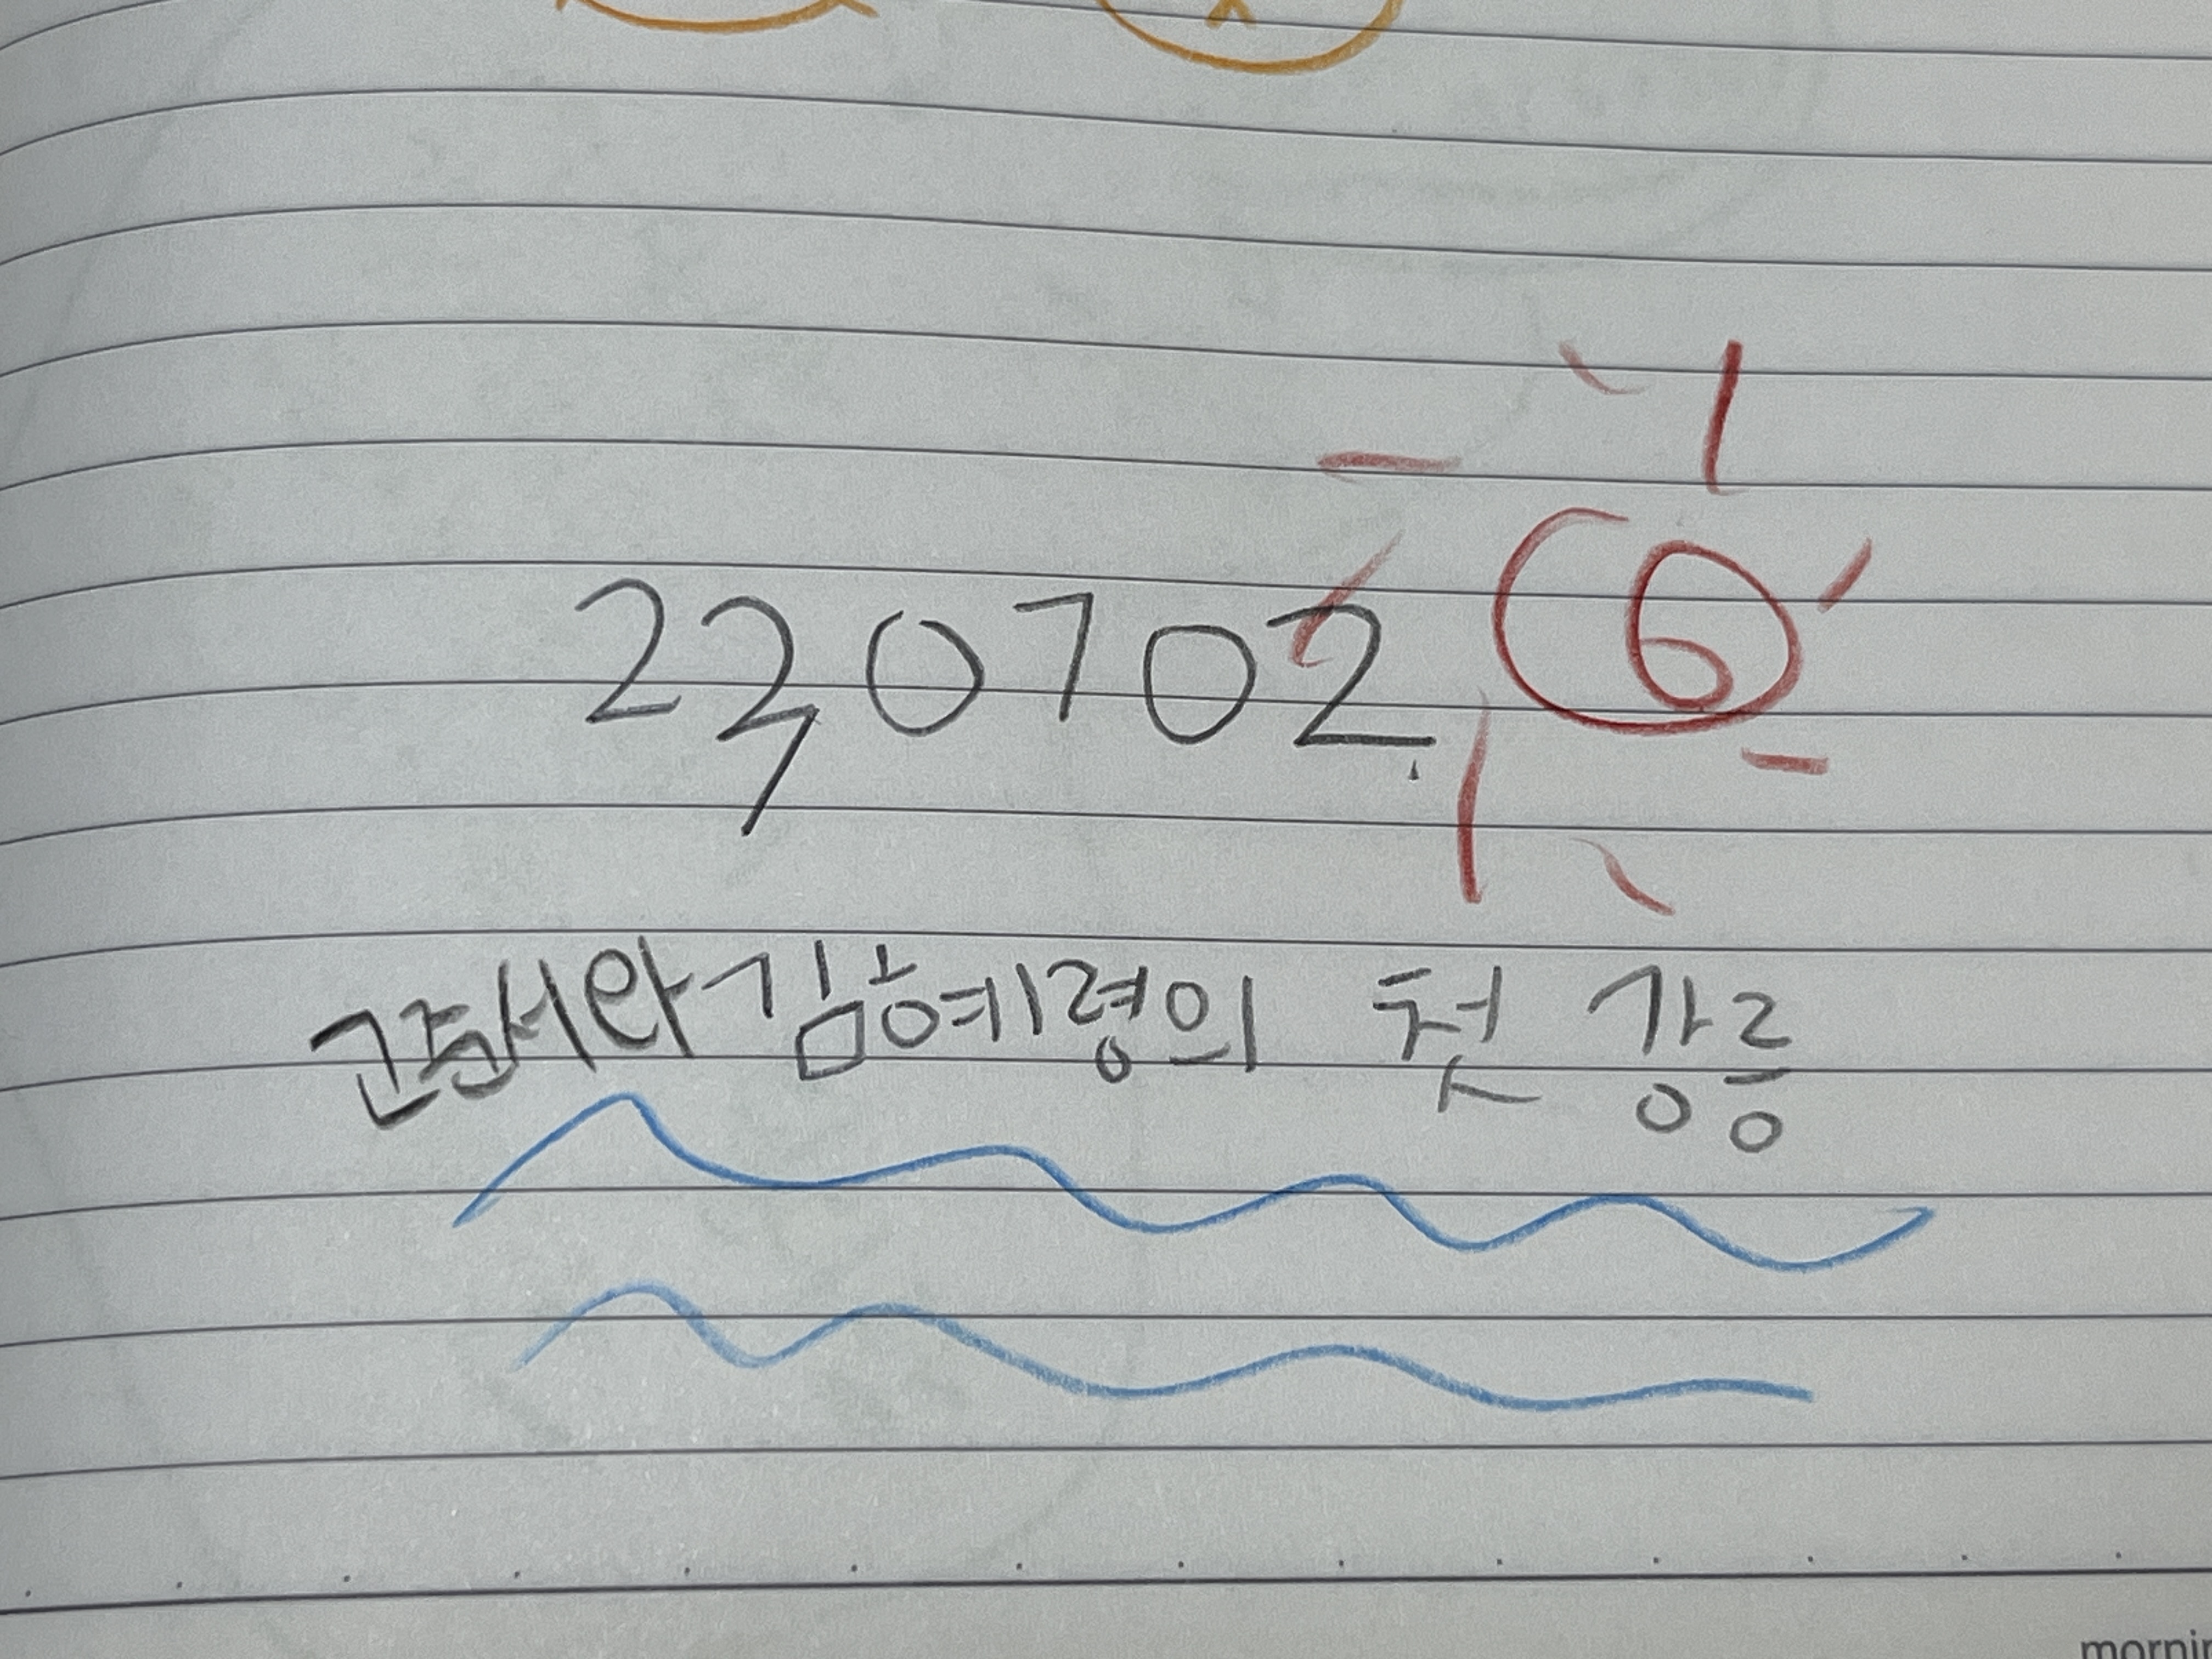 220702
김혜령의 첫 강릉
mornin